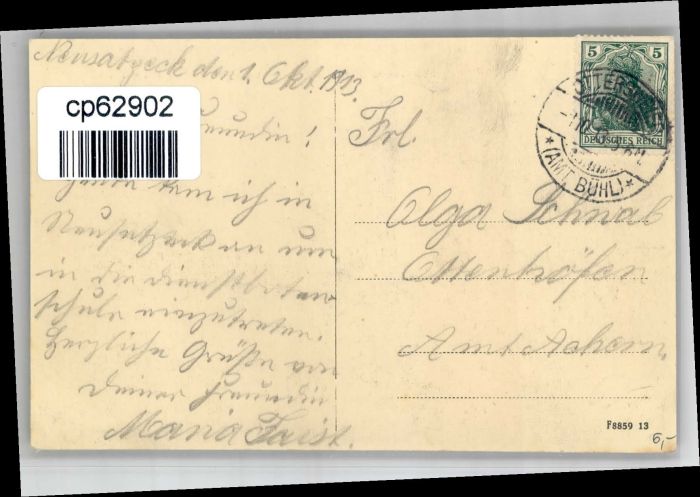 Neusatzeck den 1. Okt. 1913.
cp62902
Freundin!
Heute kam ich in
Neusatzeck an um
in die Dienstboten
schule einzutreten.
Herzliche Grüße von
Deiner Freundin
Maria Faist.
5 5
DEUTSCHES REICH
OTTERSWEIER
★(AMT BÜHL)★
Frl.
Olga Schnab
Ottenhöfen
Amt Achern.
F8859 13
6,-